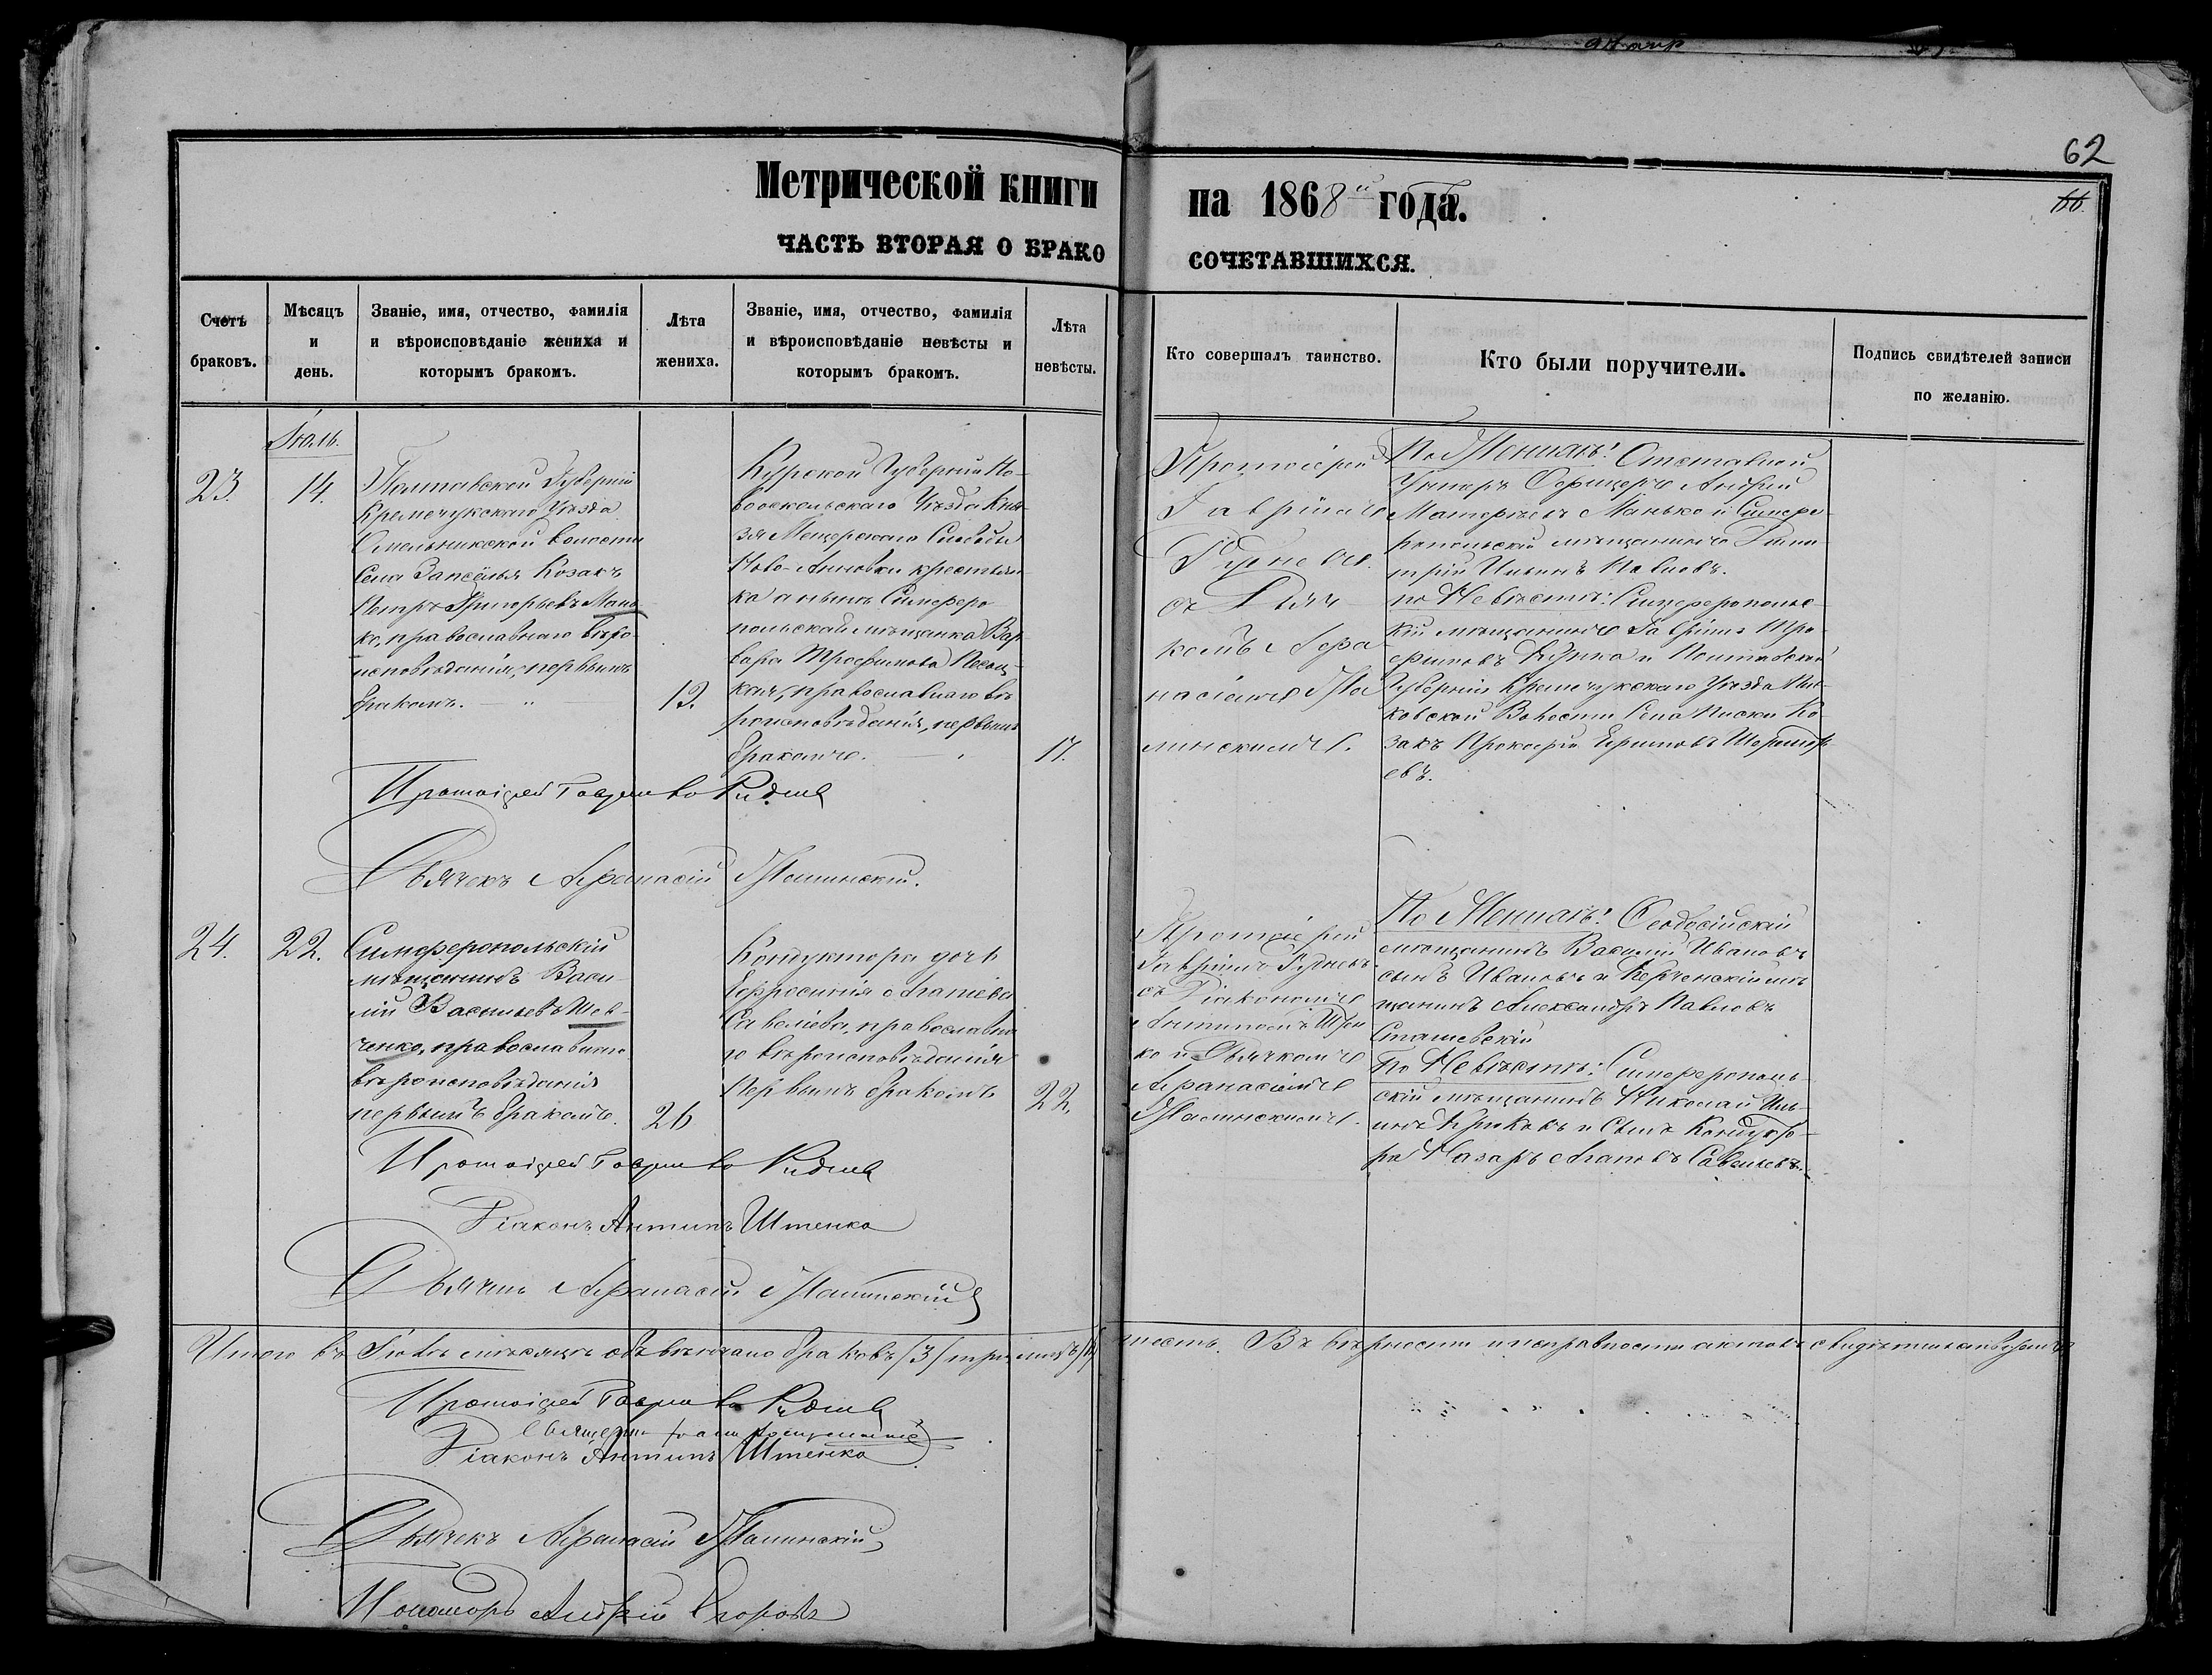 62
66.
Метрической книги на 1868й года.
ЧАСТЬ ВТОРАЯ О БРАКОСОЧЕТАВШИХСЯ.
Счетъ
браковъ.
Мѣсяцъ
и
день.
Званіе, имя, отчество, фамилія
и вѣроисповѣданіе жениха и
которымъ бракомъ.
Лѣта
жениха.
Званіе, имя, отчество, фамилія
и вѣроисповѣданіе невѣсты и
которымъ бракомъ.
Лѣта
невѣсты.
Кто совершалъ таинство.
Кто были поручители.
Подпись свидѣтелей записи
по желанію.
Іюль.
23.
14.
Полтавской Губерніи
Кременчукскаго Уѣзда
Омельникской волости
Села Запселья Козакъ
Петръ Григорьевъ Мань-
ко, православнаго вѣро-
исповѣданія, первымъ
бракомъ.
Курской Губерніи Но-
вооскольскаго Уѣзда Кня-
зя Мещерскаго Слободы
Ново-Анновки крестьян
ка а нынѣ Симферо
польская мѣщанка Вар
вара Трофимова
кая, православнаго вѣ
роисповѣданія, первымъ
бракомъ.
17.
Протоіерей
Гавріилъ
Рудневъ
съ Дьяч
комъ Афа
насіемъ

По Женихѣ: Отставной
Унтеръ Офицеръ Андрей
Матвѣевъ Манько и Симферо
польскій мѣщанинъ Дими
трій Ильинъ Павловъ.
по Невѣстѣ: Симферопольс
кій мѣщанинъ Гавріилъ Тро
фимовъ и Полтавской
Губерніи Кременчукскаго Уѣзда
ковской Волости Села Пески Ко
закъ Прокофій Ефимовъ
евъ.
Протоіерей Гавріилъ Рудневъ
Дьячекъ Афанасій
24.
22.
Симферопольскій
мѣщанинъ Васи-
лій Васильевъ Шев-
ченко, православнаго
вѣроисповѣданія
первымъ бракомъ.
26
Кондуктора дочь
Ефросинія Агапіева
Савеліева, православна
го вѣроисповѣданія
первымъ бракомъ
22.
Протоіерей
Гавріилъ Рудневъ
съ Діакономъ
Антипомъ Штен
ко и Дьячкомъ
Афанасіемъ
По Женихѣ: Ѳеодосійскій
мѣщанинъ Василій Ивановъ
сынъ Ивановъ и Керченскій мѣ
щанинъ Александръ Павловъ
Сташевскій
По Невѣстѣ: Симферополь-
скій мѣщанинъ Николай Иль-
инъ Крюковъ и Сынъ Кондукто-
ра Назаръ Агаповъ Савельевъ.
Протоіерей Гавріилъ Рудневъ
Діаконъ Антипъ Штенко
Дьячекъ Афанасій
Итого въ Іюлѣ мѣсяцѣ обвѣнчано браковъ /3/ три
Въ вѣрности и исправности актовъ свидѣтельствуемъ
Протоіерей Гавріилъ Рудневъ
Священникъ
Діаконъ Антипъ Штенко
Дьячекъ Афанасій
Пономарь Андрей Егоровъ